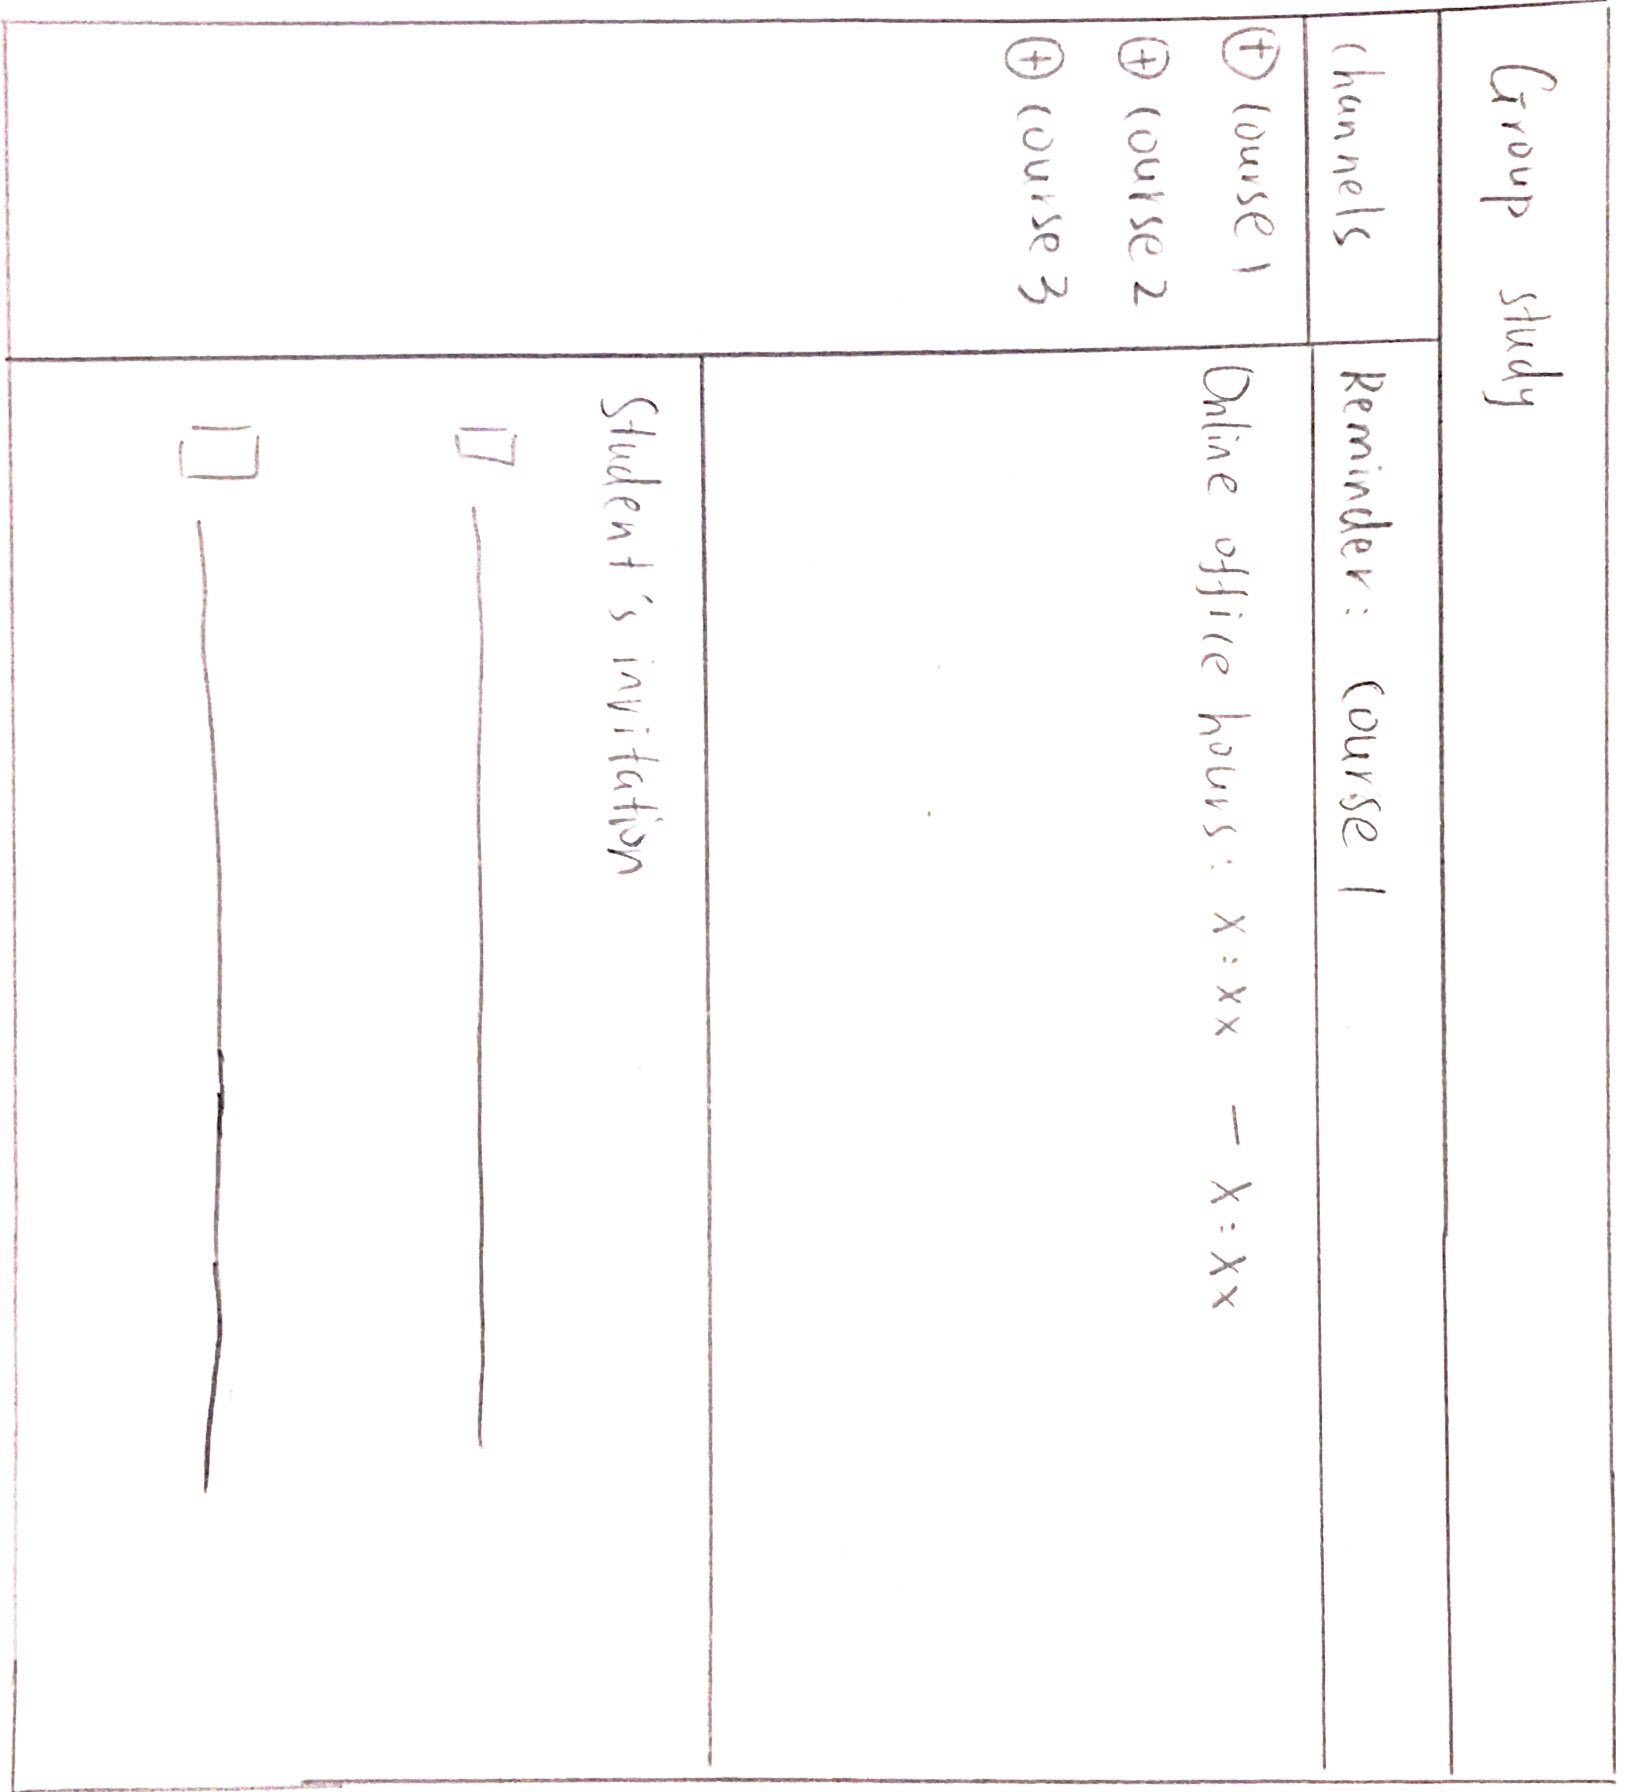 Group study
Channels
Reminder: Course 1
⊕ Course 1
⊕ Course 2
⊕ Course 3
Online office hours: x:xx - x:xx
Student's invitation